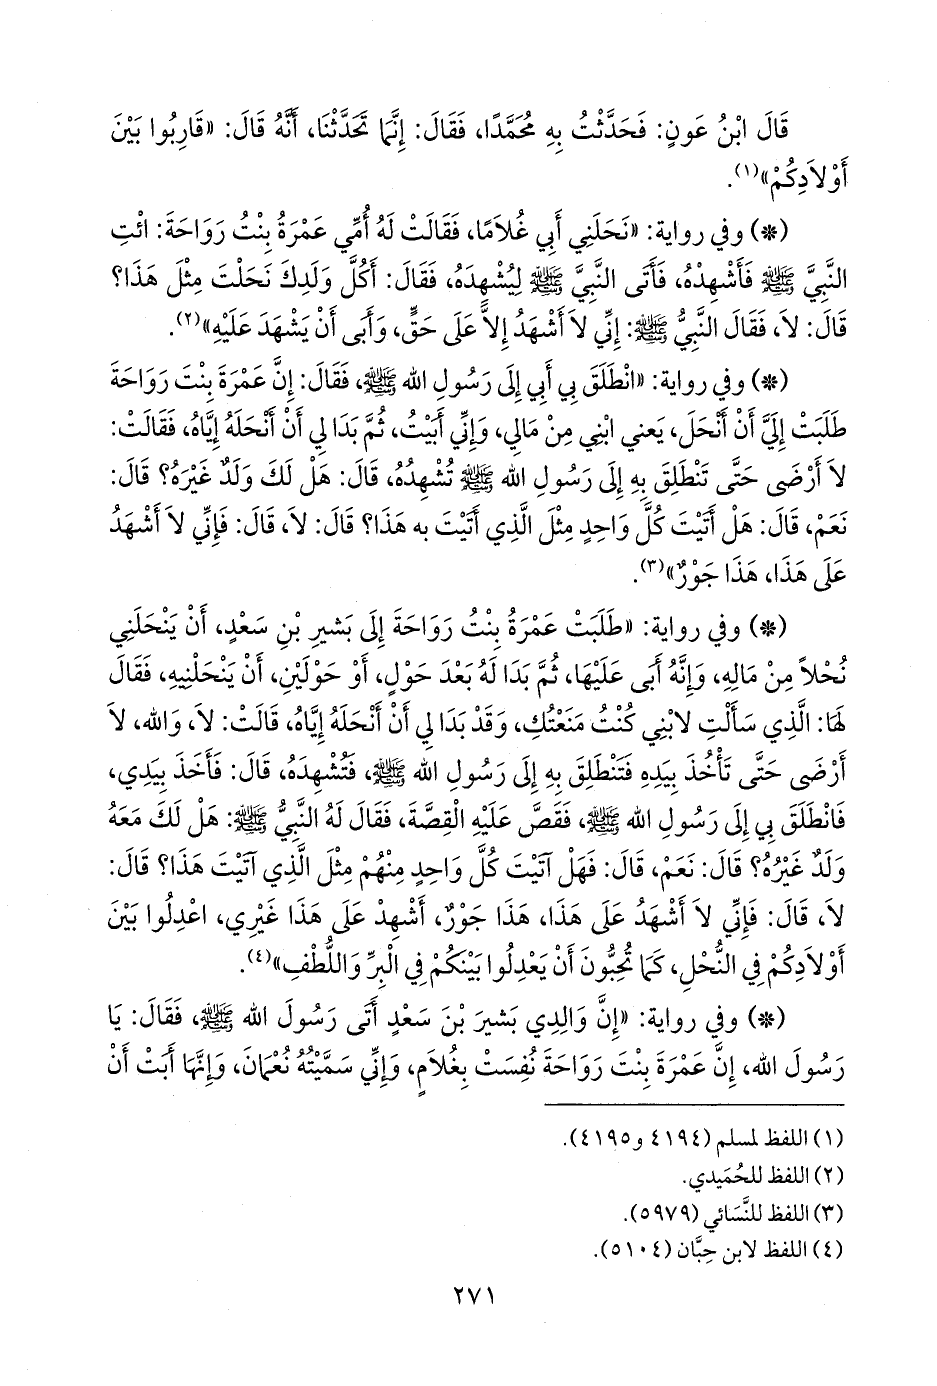 قَالَ ابْنُ عَونٍ: فَحَدَّثْتُ بِهِ مُحَمَّدًا، فَقَالَ: إِنَّمَا تَحَدَّثْنَا، أَنَّهُ قَالَ: «قَارِبُوا بَيْنَ
أَوْلاَدِكُمْ»(١).
(*) وفي رواية: «نَحَلَنِي أَبِي غُلاَمًا، فَقَالَتْ لَهُ أُمِّي عَمْرَةُ بِنْتُ رَوَاحَةَ: ائْتِ
النَّبِيَّ ﷺ فَأَشْهِدْهُ، فَأَتَى النَّبِيَّ ﷺ لِيُشْهِدَهُ، فَقَالَ: أَكُلَّ وَلَدِكَ نَحَلْتَ مِثْلَ هَذَا؟
قَالَ: لاَ، فَقَالَ النَّبِيُّ ﷺ: إِنِّي لاَ أَشْهَدُ إِلاَّ عَلَى حَقٍّ، وَأَبَى أَنْ يَشْهَدَ عَلَيْهِ»(٢).
(*) وفي رواية: «انْطَلَقَ بِي أَبِي إِلَى رَسُولِ الله ﷺ، فَقَالَ: إِنَّ عَمْرَةَ بِنْتَ رَوَاحَةَ
طَلَبَتْ إِلَيَّ أَنْ أَنْحَلَ، يَعني ابْنِي مِنْ مَالِي، وَإِنِّي أَبَيْتُ، ثُمَّ بَدَا لِي أَنْ أَنْحَلَهُ إِيَّاهُ، فَقَالَتْ:
لاَ أَرْضَى حَتَّى تَنْطَلِقَ بِهِ إِلَى رَسُولِ الله ﷺ تُشْهِدُهُ، قَالَ: هَلْ لَكَ وَلَدٌ غَيْرَهُ؟ قَالَ:
نَعَمْ، قَالَ: هَلْ أَتَيْتَ كُلَّ وَاحِدٍ مِثْلَ الَّذِي أَتَيْتَ به هَذَا؟ قَالَ: لاَ، قَالَ: فَإِنِّي لاَ أَشْهَدُ
عَلَى هَذَا، هَذَا جَوْرٌ»(٣).
(*) وفي رواية: «طَلَبَتْ عَمْرَةُ بِنْتُ رَوَاحَةَ إِلَى بَشيرِ بْنِ سَعْدٍ، أَنْ يَنْحَلَنِي
نُحْلاً مِنْ مَالِهِ، وَإِنَّهُ أَبَى عَلَيْهَا، ثُمَّ بَدَا لَهُ بَعْدَ حَوْلٍ، أَوْ حَوْلَيْنِ، أَنْ يَنْحَلْنِيهِ، فَقَالَ
لَهَا: الَّذِي سَأَلْتِ لاِبْنِي كُنْتُ مَنَعْتُكِ، وَقَدْ بَدَا لِي أَنْ أَنْحَلَهُ إِيَّاهُ، قَالَتْ: لاَ، وَالله، لاَ
أَرْضَى حَتَّى تَأْخُذَ بِيَدِهِ فَتَنْطَلِقَ بِهِ إِلَى رَسُولِ الله ﷺ، فَتُشْهِدَهُ، قَالَ: فَأَخَذَ بِيَدِي،
فَانْطَلَقَ بِي إِلَى رَسُولِ الله ﷺ، فَقَصَّ عَلَيْهِ الْقِصَّةَ، فَقَالَ لَهُ النَّبِيُّ ﷺ: هَلْ لَكَ مَعَهُ
وَلَدٌ غَيْرُهُ؟ قَالَ: نَعَمْ، قَالَ: فَهَلْ آتَيْتَ كُلَّ وَاحِدٍ مِنْهُمْ مِثْلَ الَّذِي آتَيْتَ هَذَا؟ قَالَ:
لاَ، قَالَ: فَإِنِّي لاَ أَشْهَدُ عَلَى هَذَا، هَذَا جَوْرٌ، أَشْهِدْ عَلَى هَذَا غَيْرِي، اعْدِلُوا بَيْنَ
أَوْلاَدِكُمْ فِي النُّحْلِ، كَمَا تُحِبُّونَ أَنْ يَعْدِلُوا بَيْنَكُمْ فِي الْبِرِّ وَاللُّطْفِ»(٤).
(*) وفي رواية: «إِنَّ وَالِدِي بَشيرَ بْنَ سَعْدٍ أَتَى رَسُولَ الله ﷺ، فَقَالَ: يَا
رَسُولَ الله، إِنَّ عَمْرَةَ بِنْتَ رَوَاحَةَ نُفِسَتْ بِغُلاَمٍ، وَإِنِّي سَمَّيْتُهُ نُعْمَانَ، وَإِنَّهَا أَبَتْ أَنْ
(١) اللفظ لمسلم (٤١٩٤ و٤١٩٥).
(٢) اللفظ للحُمَيدي.
(٣) اللفظ للنَّسَائي (٥٩٧٩).
(٤) اللفظ لابن حِبَّان (٥١٠٤).
٢٧١